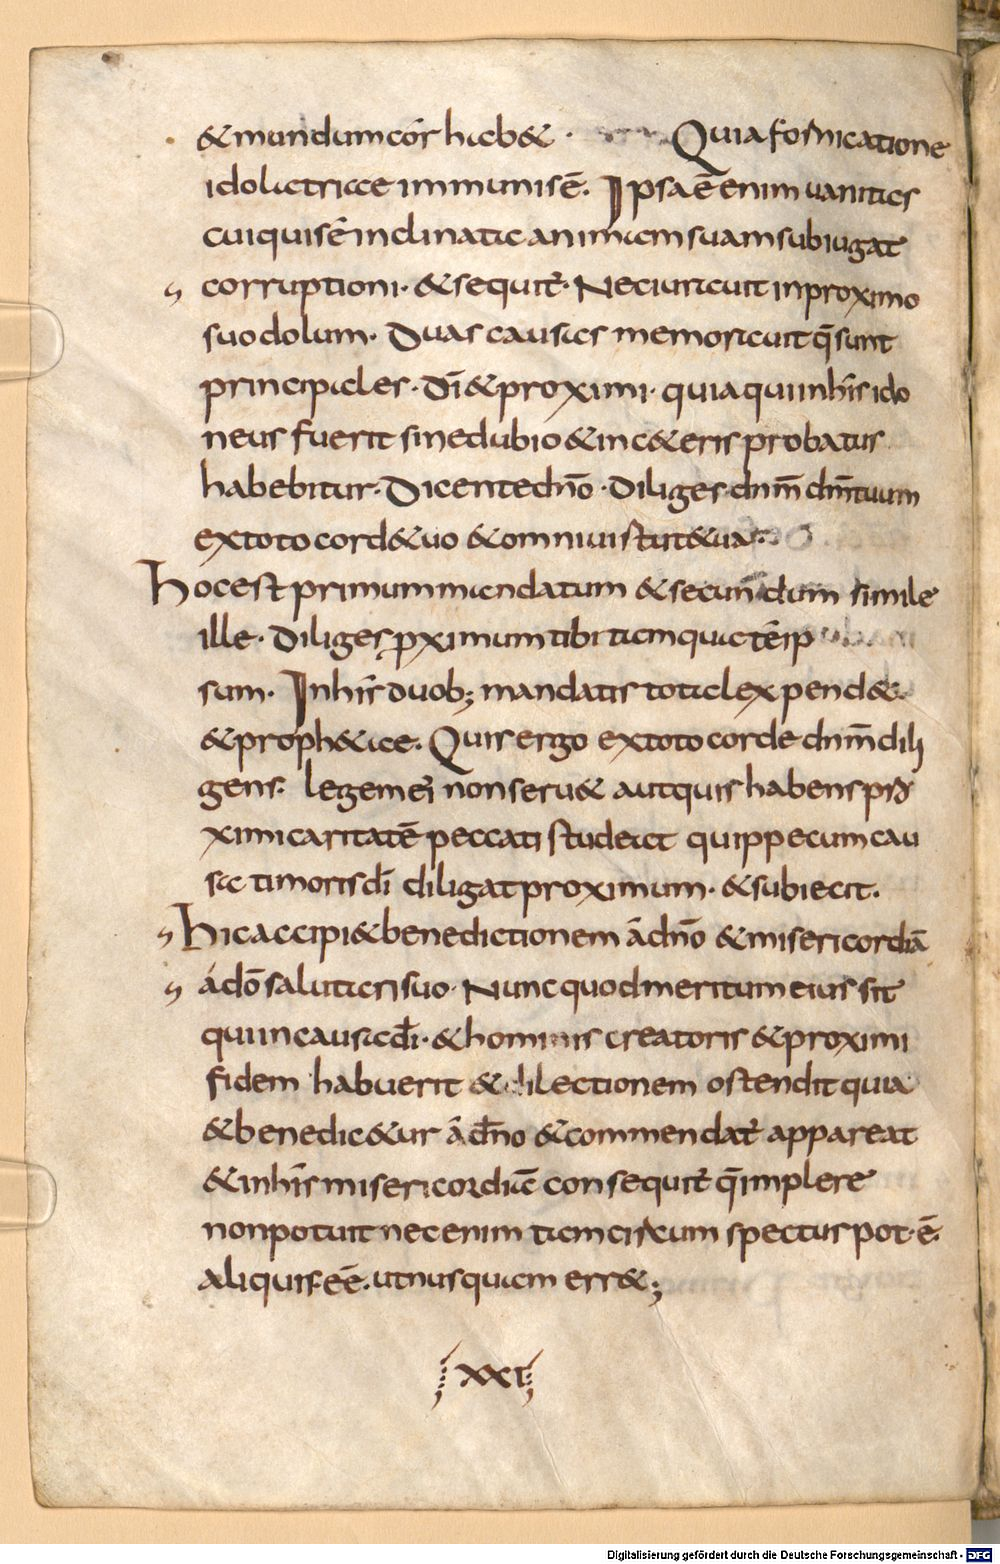 & mundum cor hab& · Quia fornicatione
idolatriae immunis ē. Ipsa ē enim uanitas
cui quis ē inclinatae animam suam subiugat
corruptioni · & sequit̄ · Nec iurauit in proximo
suo dolum · Duas causas memorauit q̄ sunt
principales · dī & proximi · quia qui in hīs ido
neus fuerit sine dubio & in c&eris probatus
habebitur · Dicente dn̄o · Diliges dnm̄ dm̄ tuum
ex toto cord& uo & omni uirtut& ua
Hoc est primum mandatum & secundum simile
ille · Diliges pximum tibi tamqua te ip
sum · In his duob; mandatis tota lex pend&
& proph&ae · Quis ergo ex toto corde dnm̄ dili
gens · legem eī non seru& aut quis habens pro
ximi caritatē peccati studeat quippe cum cau
sa timoris dī diligat proximum · & subiecit ·
Hic accipi& benedictionem a dn̄o & misericordiā
a dō salutari suo · Nunc quod meritum eius sit
qui in causa dī · & hominis creatoris & proximi
fidem habuerit & dilectionem ostendit quia
& benedic&ur a dn̄o & commendat̄ appareat
& in hīs misericordiā consequit̄ q̄ implere
non potuit nec enim tam circumspectus pot · ē ·
aliquis eē · ut nusquam err&;
xxi
Digitalisierung gefördert durch die Deutsche Forschungsgemeinschaft - DFG